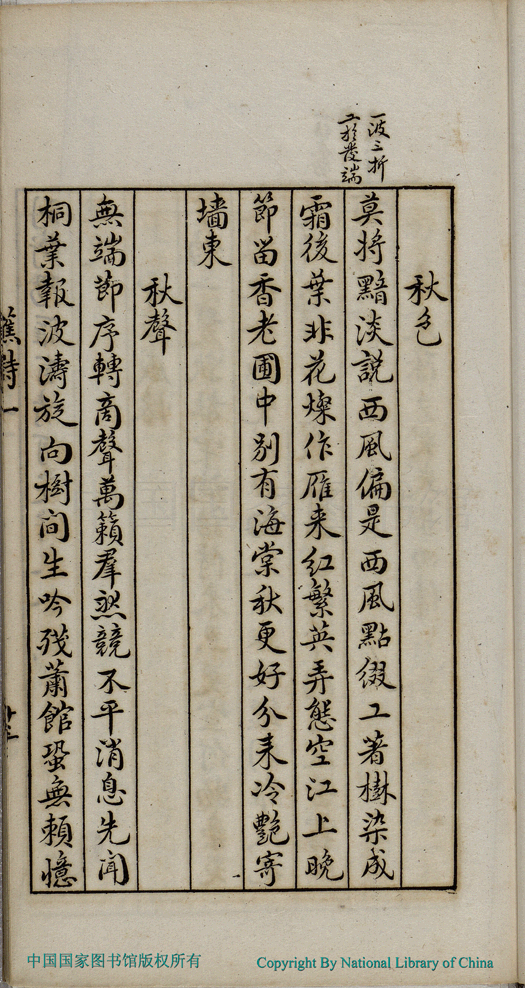 一波三折
工於發端
秋色
莫將黯淡說西風偏是西風點綴工著樹染成
霜後葉非花燦作雁来紅繁英弄態空江上晚
節留香老圃中別有海棠秋更好分来冷艷寄
墻東
秋聲
無端節序轉商聲萬籟羣然競不平消息先聞
桐葉報波濤旋向樹間生吟殘蕭館蛩無賴憶
蕉詩一
中国国家图书馆版权所有
Copyright By National Library of China